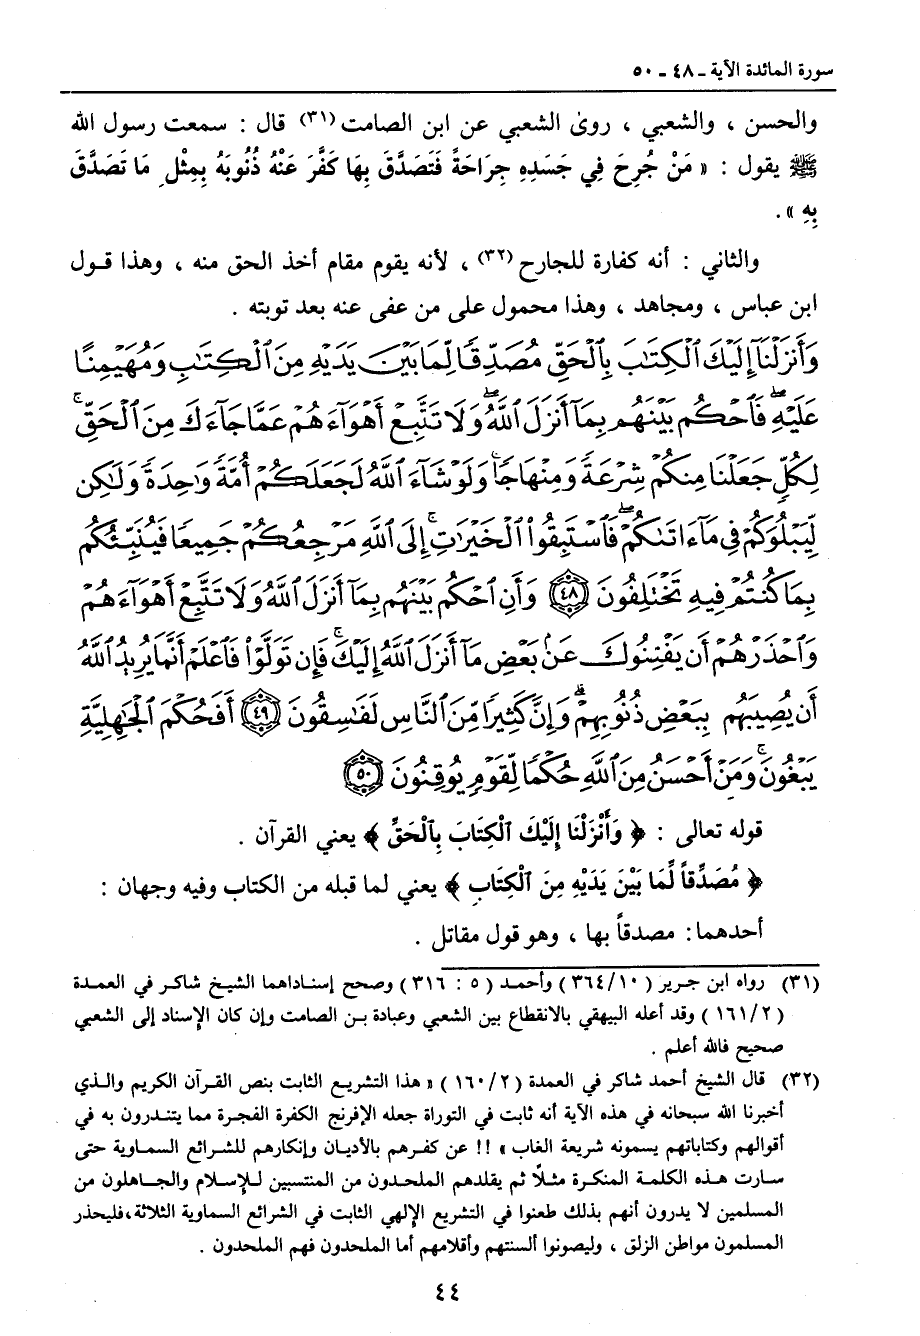 سورة المائدة الآية ـ ٤٨ ـ ٥٠
والحسن ، والشعبي ، روىٰ الشعبي عن ابن الصامت(٣١) قال : سمعت رسول الله
ﷺ يقول : « مَنْ جُرِحَ فِي جَسَدِهِ جِرَاحَةً فَتَصَدَّقَ بِهَا كَفَّرَ عَنْهُ ذُنُوبَهُ بِمِثْلِ مَا تَصَدَّقَ
بِهِ » .
والثاني : أنه كفارة للجارح(٣٢) ، لأنه يقوم مقام أخذ الحق منه ، وهذا قـول
ابن عباس ، ومجاهد ، وهذا محمول على من عفى عنه بعد توبته .
وَأَنزَلْنَآ إِلَيْكَ ٱلْكِتَٰبَ بِٱلْحَقِّ مُصَدِّقًا لِّمَا بَيْنَ يَدَيْهِ مِنَ ٱلْكِتَٰبِ وَمُهَيْمِنًا
عَلَيْهِ ۖ فَٱحْكُم بَيْنَهُم بِمَآ أَنزَلَ ٱللَّهُ ۖ وَلَا تَتَّبِعْ أَهْوَآءَهُمْ عَمَّا جَآءَكَ مِنَ ٱلْحَقِّ ۚ
لِكُلٍّ جَعَلْنَا مِنكُمْ شِرْعَةً وَمِنْهَاجًا ۚ وَلَوْ شَآءَ ٱللَّهُ لَجَعَلَكُمْ أُمَّةً وَٰحِدَةً وَلَٰكِن
لِّيَبْلُوَكُمْ فِى مَآ ءَاتَىٰكُمْ ۖ فَٱسْتَبِقُوا۟ ٱلْخَيْرَٰتِ ۚ إِلَى ٱللَّهِ مَرْجِعُكُمْ جَمِيعًا فَيُنَبِّئُكُم
بِمَا كُنتُمْ فِيهِ تَخْتَلِفُونَ ٤٨ وَأَنِ ٱحْكُم بَيْنَهُم بِمَآ أَنزَلَ ٱللَّهُ وَلَا تَتَّبِعْ أَهْوَآءَهُمْ
وَٱحْذَرْهُمْ أَن يَفْتِنُوكَ عَنۢ بَعْضِ مَآ أَنزَلَ ٱللَّهُ إِلَيْكَ ۖ فَإِن تَوَلَّوْا۟ فَٱعْلَمْ أَنَّمَا يُرِيدُ ٱللَّهُ
أَن يُصِيبَهُم بِبَعْضِ ذُنُوبِهِمْ ۗ وَإِنَّ كَثِيرًا مِّنَ ٱلنَّاسِ لَفَٰسِقُونَ ٤٩ أَفَحُكْمَ ٱلْجَٰهِلِيَّةِ
يَبْغُونَ ۚ وَمَنْ أَحْسَنُ مِنَ ٱللَّهِ حُكْمًا لِّقَوْمٍ يُوقِنُونَ ٥٠
قوله تعالى : ﴿ وَأَنْزَلْنَا إِلَيْكَ ٱلْكِتَابَ بِٱلْحَقِّ ﴾ يعني القرآن .
﴿ مُصَدِّقاً لِّمَا بَيْنَ يَدَيْهِ مِنَ ٱلْكِتَابِ ﴾ يعني لما قبله من الكتاب وفيه وجهان :
أحدهما: مصدقاً بها ، وهو قول مقاتل .
(٣١) رواه ابن جـرير (٣٦٤/١٠) وأحمـد (٥ : ٣١٦) وصحح إسنـاداهما الشيـخ شاكر في العمـدة
(١٦١/٢) وقد أعله البيهقي بالانقطاع بين الشعبي وعبادة بـن الصامت وإن كان الإسناد إلى الشعبي
صحيح فالله أعلم .
(٣٢) قال الشيخ أحمد شاكر في العمدة (١٦٠/٢) « هذا التشريـع الثابت بنص القـرآن الكريم والـذي
أخبرنا الله سبحانه في هذه الآية أنه ثابت في التوراة جعله الإفرنج الكفرة الفجرة مما يتنـدرون به في
أقوالهم وكتاباتهم يسمونه شريعة الغاب » !! عن كفـرهم بالأديـان وإنكارهم للشـرائع السمـاوية حتى
سـارت هـذه الكلمـة المنكرة مثـلًا ثم يقلدهم الملحـدون من المنتسبين لـلإسـلام والجـاهلون من
المسلمين لا يدرون أنهم بذلك طعنوا في التشريع الإلهي الثابت في الشرائع السماوية الثلاثة،فليحذر
المسلمون مواطن الزلق ، وليصونوا ألسنتهم وأقلامهم أما الملحدون فهم الملحدون .
٤٤